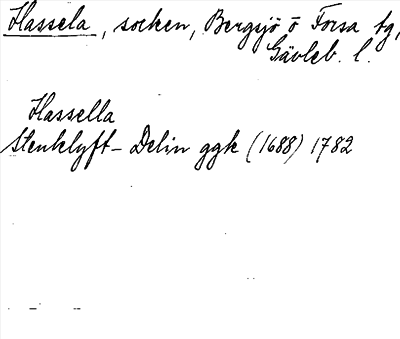 Hassela, socken, Bergsjö o Forsa tg,
Gävleb. l.
Hassella
Stenklyft – Delin ggk (1688) 1782